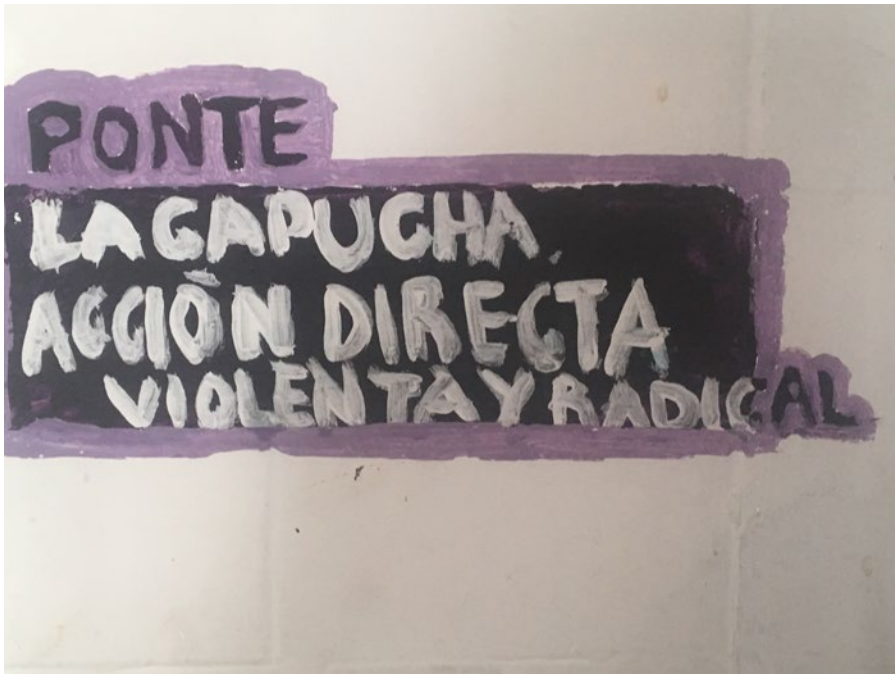 PONTE
LA CAPUCHA.
ACCIÓN DIRECTA
VIOLENTA Y RADICAL